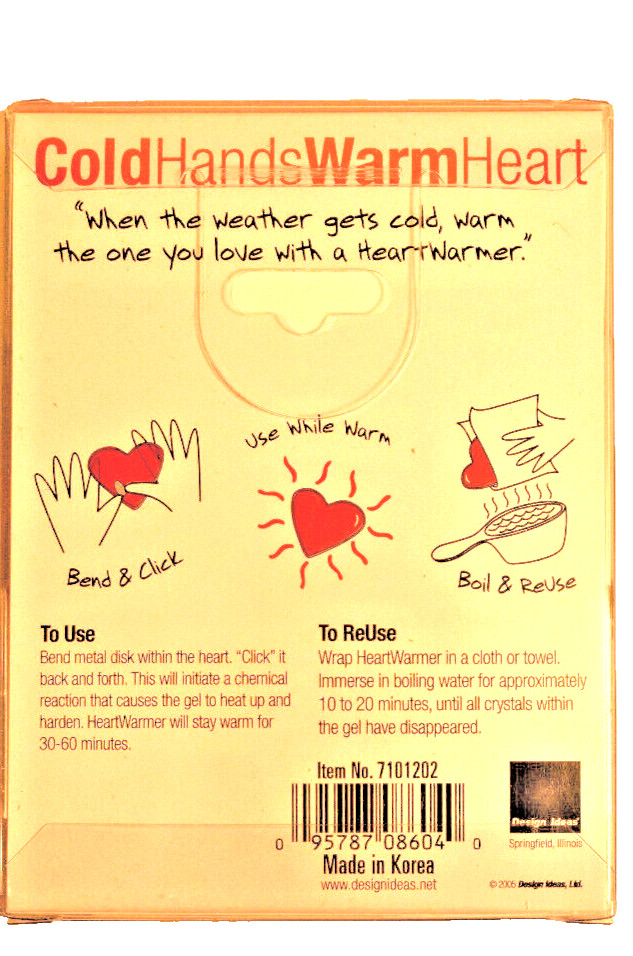 ColdHandsWarmHeart
"When the weather gets cold, warm
the one you love with a HeartWarmer."
Use While Warm
Bend & Click
Boil & ReUse
To Use
Bend metal disk within the heart. "Click" it
back and forth. This will initiate a chemical
reaction that causes the gel to heat up and
harden. HeartWarmer will stay warm for
30-60 minutes.
To ReUse
Wrap HeartWarmer in a cloth or towel.
Immerse in boiling water for approximately
10 to 20 minutes, until all crystals within
the gel have disappeared.
Item No. 7101202
0 95787 08604 0
Made in Korea
www.designideas.net
Design Ideas
Springfield, Illinois
© 2005 Design Ideas, Ltd.